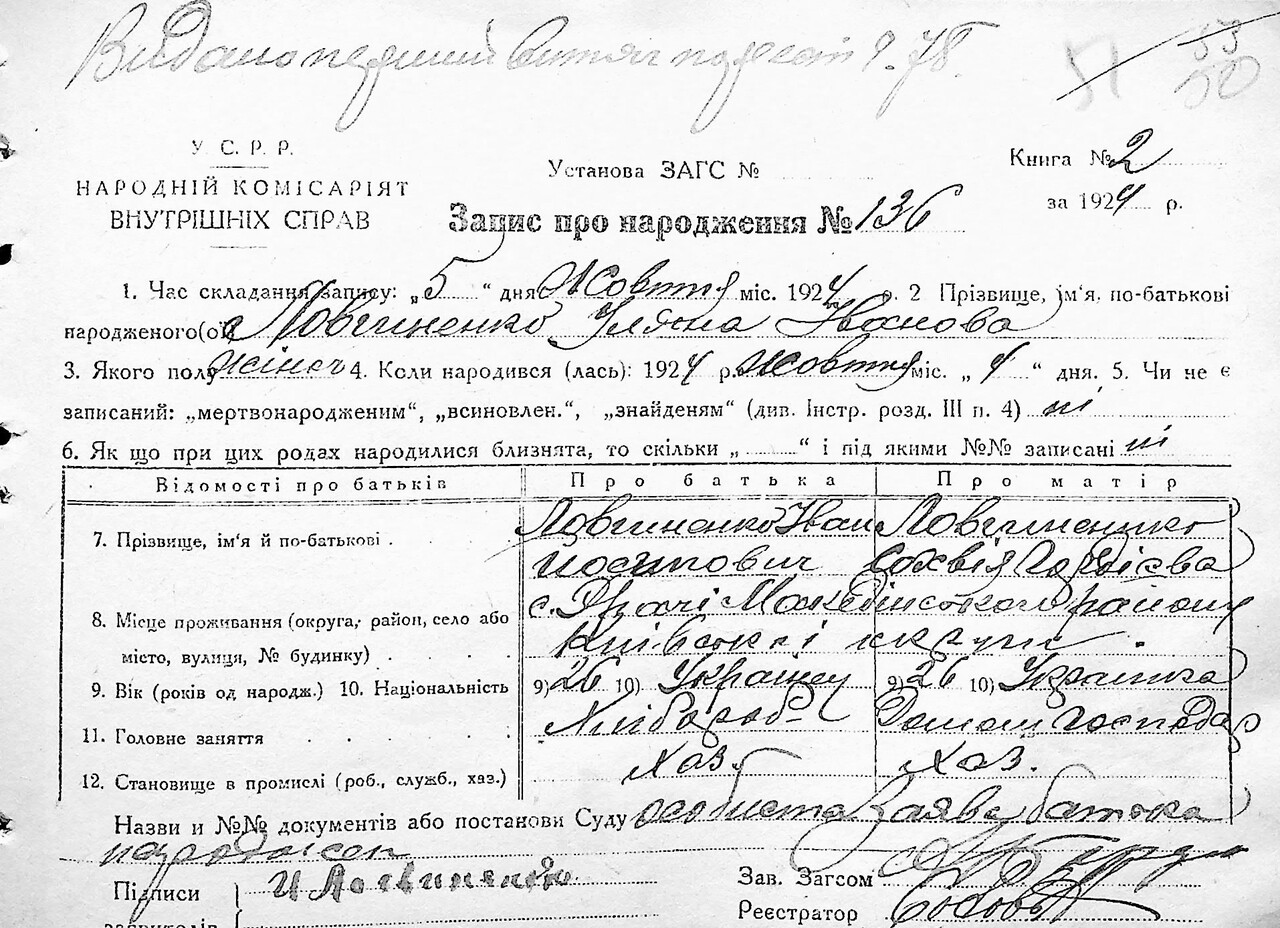 Видано перший витяг 9.78.
51 53
50
У. С. Р. Р.
НАРОДНІЙ КОМІСАРІЯТ
ВНУТРІШНІХ СПРАВ
Установа ЗАГС №
Книга № 2
за 1924 р.
Запис про народження № 136
1. Час складання запису: „5“ дня Жовтня міс. 1924 р. 2 Прізвище, ім'я, по-батькові
народженого(ої) Ловгиненко Уляна Іванова
3. Якого полу жіноч 4. Коли народився (лась): 1924 р. Жовтня міс. „4“ дня. 5. Чи не є
записаний: „мертвонародженим“, „всиновлен.“, „знайденям“ (див. Інстр. розд. III п. 4) ні
6. Як що при цих родах народилися близнята, то скільки „ “ і під якими №№ записані ні
Відомості про батьків Про батька Про матір
7. Прізвище, ім'я й по-батькові . Ловгиненко Іван Йосипович Ловгиненко Сохвія Гордієва
8. Місце проживання (округа, район, село або
місто, вулиця, № будинку) . . . с. Драчі Македонського району
Київської округи.
9. Вік (років од народж.) 10. Національність 9) 26 10) Українец 9) 26 10) Українка
11. Головне заняття . . . . . Хлібороб Домаш господар
12. Становище в промислі (роб., служб., хаз.) Хаз. Хаз.
Назви и №№ документів або постанови Суду особиста заява батька
Підписи
заявителів
Зав. Загсом
Реєстратор